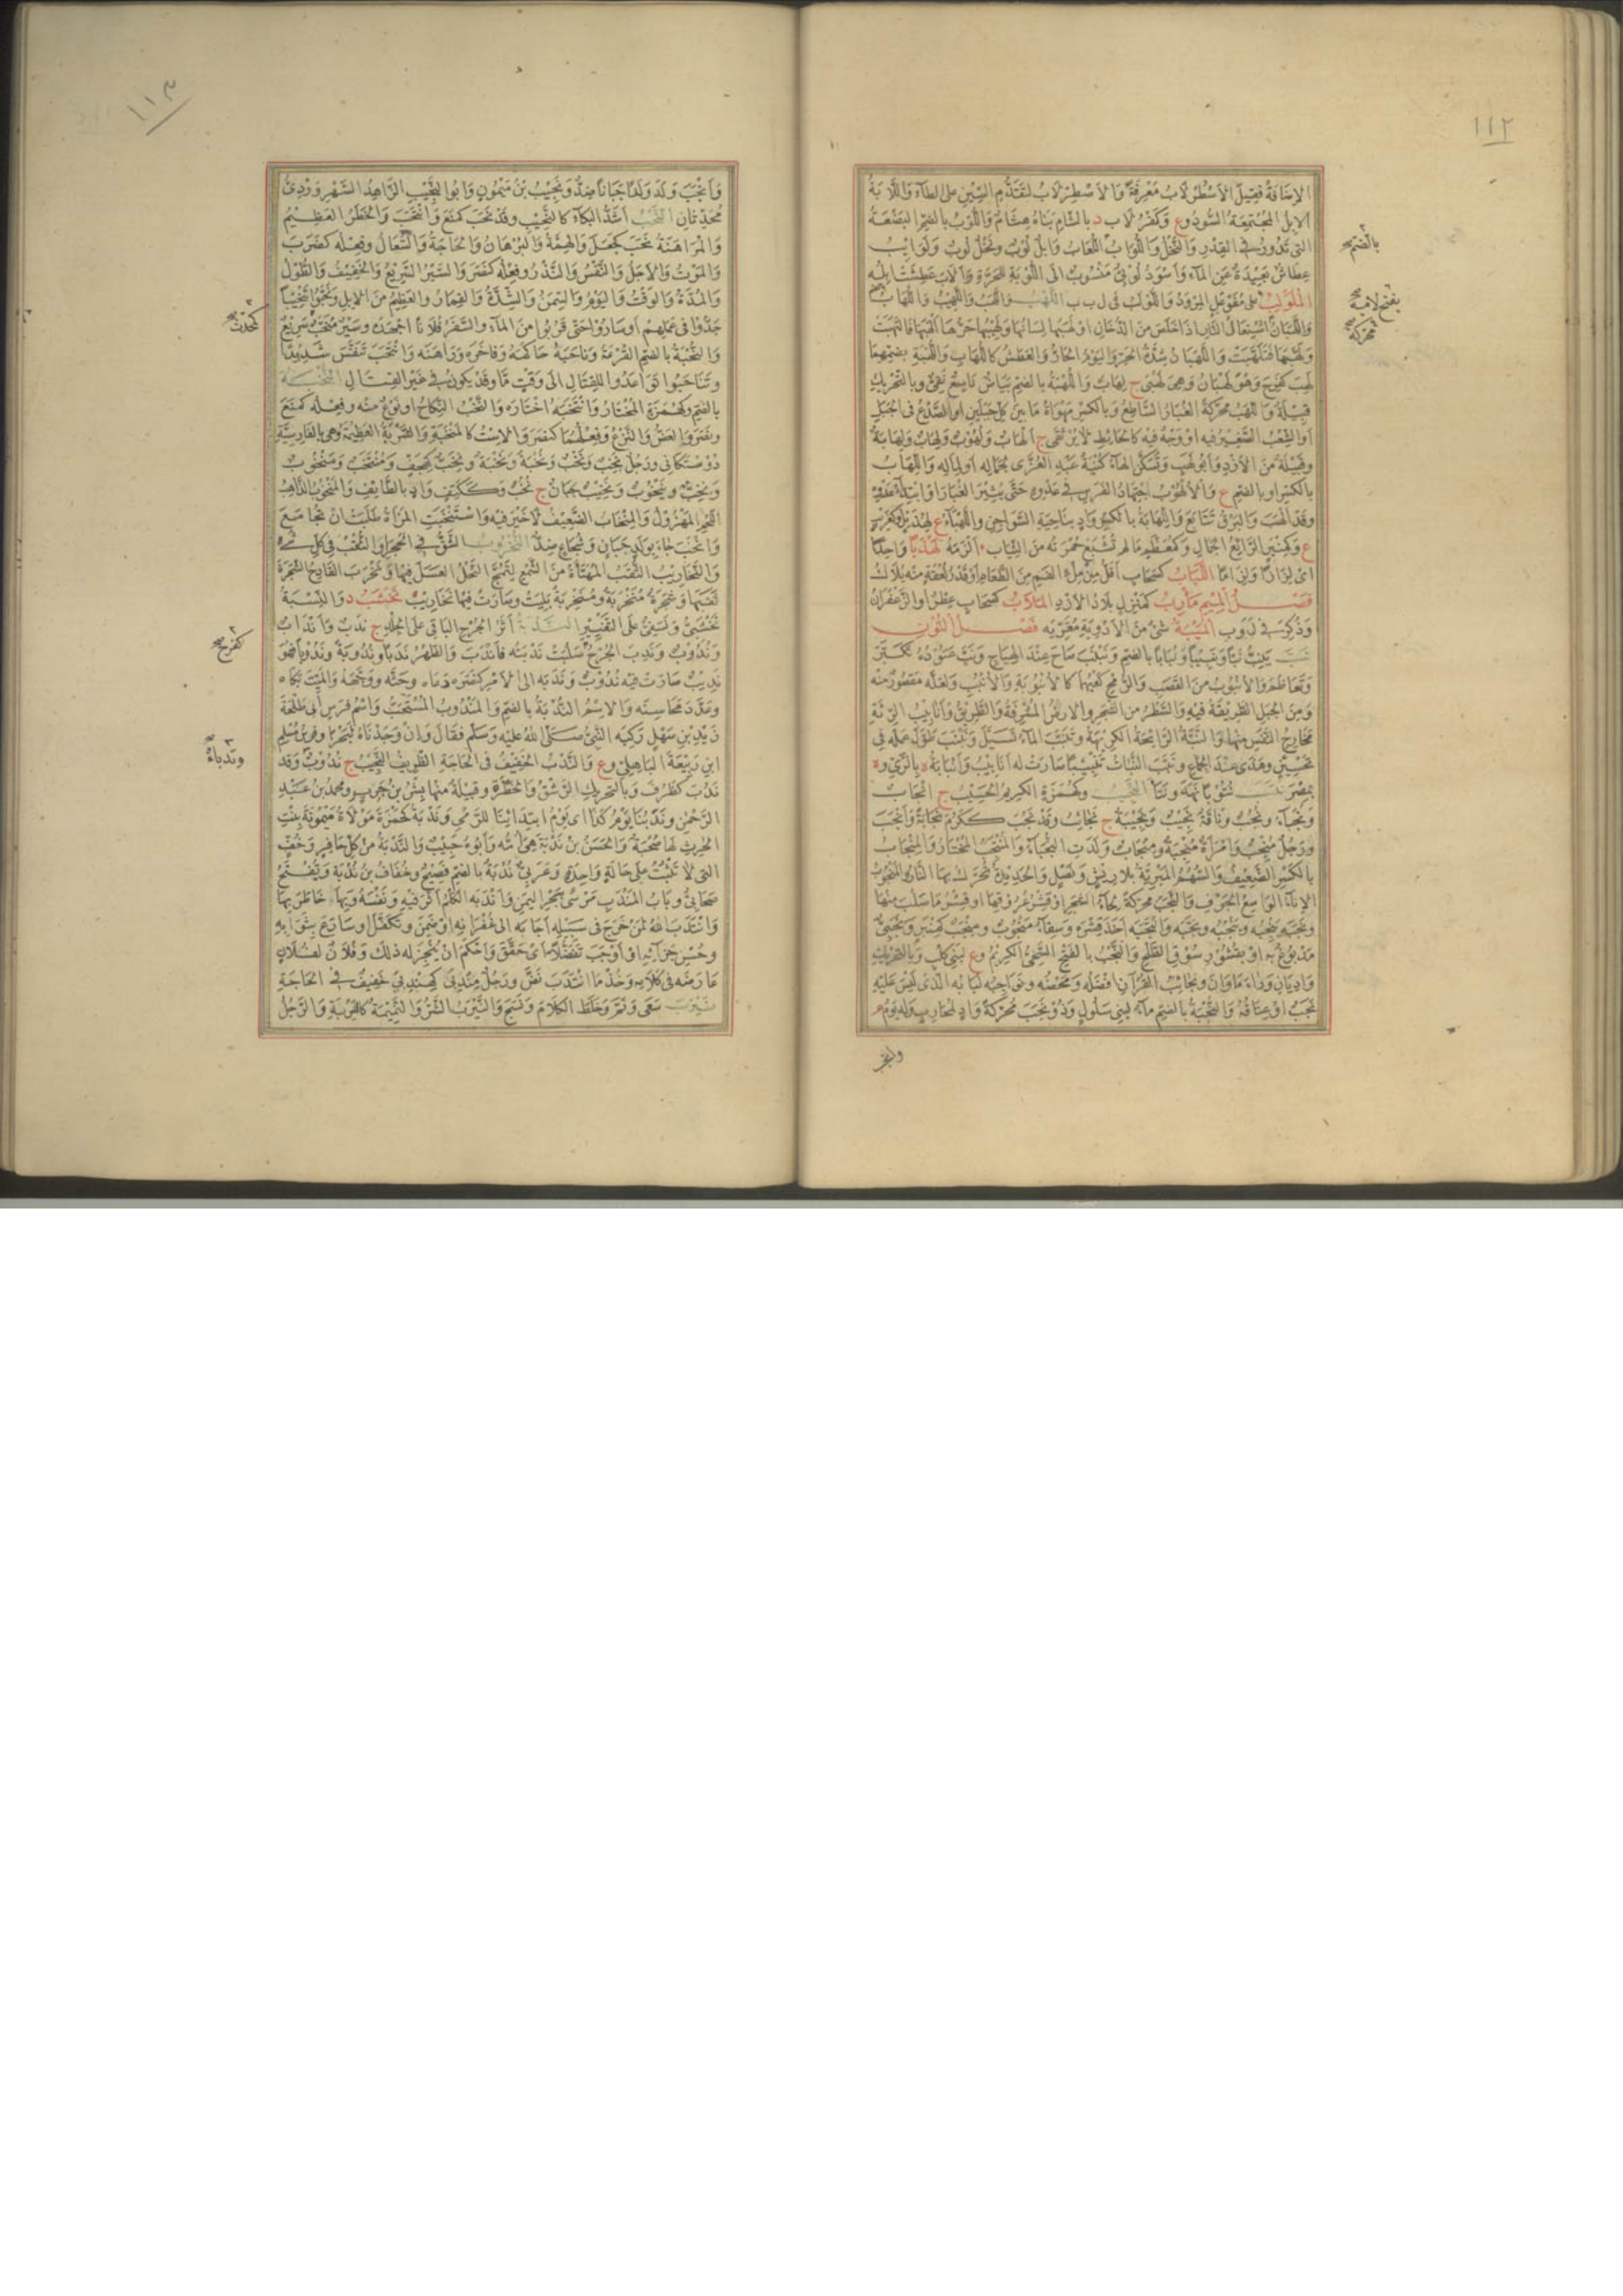 ١١٢
الإضافة فقيل الأسطرلاب معرفة والأصطرلاب لتقدم السين على الطاء واللابة
الإبل المجتمعة السود وع وكفر لاب د بالشام بناه هشام واللوب بالضم البضعة
بالضم صح
التي تدور في القدر والنحل واللواب اللعاب وإبل لوب ونخل لوب ولوائب
عطاش بعيدة عن الماء وأسود لوبي منسوب إلى اللوبة للحرة وألاب عطشت إبله
الملولب على مفوعل المرود واللولب في ل ب ب اللهب واللهب واللهيب واللهاب
واللهبان اشتعال النار إذا خلص من الدخان أو لهبها لسانها ولهيبها حرها ألهبها فالتهبت
محركة
ولهبها فتلهبت واللهبان شدة الحر واليوم الحار والعطش كاللهاب واللهبة بضمهما
لهب كفرح وهو لهبان وهي لهبى ج لهاب واللهبة بالضم بياض ناصع نقي وبالتحريك
قبيلة واللهب محركة الغبار الساطع وبالكسر مهواة ما بين كل جبلين أو الصدع في الجبل
أو الشعب الصغير فيه أو وجه فيه كالحائط لا يرتقى ج ألهاب ولهوب ولهاب ولهابة
وقبيلة من الأزد وأبو لهب وتسكن الهاء كنية عبد العزى لجماله أو لماله واللهاب
بالكسر أو بالضم ع والألهوب اجتهاد الفرس في عدوه حتى يثير الغبار أو ابتداء عدوه
وقد ألهب والبرق تتابع واللهابة بالكسر واد بناحية الشواجن واللهباء ع لهذيل وكغراب
ع وكمنبر الرائع الجمال وكمعظم ما لم تشبع حمرته من الثياب ألزمه لهذبا واحدا
أي لزازا ولزاما اللياب كسحاب أقل من ملء الفم من الطعام أو قدر لعقة منه يلاك
فصل الميم مأرب كمنزل بلاد الأزد الملاب كسحاب عطر أو الزعفران
وذكر في ل و ب الميبة شيء من الأدوية معربه فصل النون
نب ينب نبا ونبيبا ونبابا بالضم ونبنب صاح عند الهياج ونب عتوده تكبر
وتعاظم والأنبوب من القصب والرمح كعبهما كالأنبوبة والأنبب ولعله مقصور منه
ومن الجبل الطريقة فيه والسطر من الشجر والأرض المشرفة والطريق وأنابيب الرئة
مخارج النفس منها والنبة الرائحة الكريهة وتنبب الماء تسيل ونبنب طول عمله في
تحسين وهذى عند الجماع ونبب النبات تنبيبا صارت له أنابيب وأنبابة ة بالري وة
بمصر نتب نتوبا نهد ونتأ النجيب وكهمزة الكريم الحسيب ج أنجاب
ونجباء ونجب وناقة نجيب ونجيبة ج نجائب وقد نجب ككرم نجابة وأنجب
ورجل منجب وامرأة منجبة ومنجاب ولدت النجباء والمنتجب المختار والمنجاب
بالكسر الضعيف والسهم المبري بلا ريش ونصل والحديدة تحرك بها النار والمنجوب
الإناء الواسع الجوف والنجب محركة لحاء الشجر أو قشر عروقها أو قشر ما صلب منها
ونجبه ينجبه وينجبه ونجبه وانتجبه أخذ قشره وسقاء منجوب ومنجب كمنبر ونجبي
مدبوغ به أو بقشور سوق الطلح والنجب بالفتح السخي الكريم وع لبني كلب وبالتحريك
واديان وراء ماوان ونجائب القرآن أفضله ومحضه ونواجبه لبابه الذي ليس عليه
نجب أو عتاقه والنجبة بالضم ماءة لبني سلول وذو نجب محركة واد لمحارب وله يوم م
١١٣
وأنجب ولد ولدا جبانا ضد ونجيب بن ميمون وأبو النجيب الزاهد السهروردي
محدثان النحب أشد البكاء كالنحيب وقد نحب كمنع وانتحب والخطر العظيم
والمراهنة نحب كجعل والهمة والبرهان والحاجة والسعال وفعله كضرب
والموت والأجل والنفس والنذر وفعله كنصر والسير السريع والخفيف والطول
والمدة والوقت واليوم والسمن والشدة والقمار والعظيم من الإبل ونحبوا تنحيبا
جدوا في عملهم أو ساروا حتى قربوا من الماء والسفر فلانا أجهده وسير منحب سريع
كمحدث صح
والنحبة بالضم القرعة وناحبه حاكمه وفاخره وراهنه وانتحب تنفس شديدا
وتناحبوا تواعدوا للقتال إلى وقت ما وقد يكون في غير القتال النخبة
بالضم وكهمزة المختار وانتخبه اختاره والنخب النكاح أو نوع منه وفعله كمنع
ونصر والعض والنزع وفعلهما كنصر والاست كالمنخبة والشربة العظيمة وهي بالفارسية
دوستكاني ورجل نخب ونخب ونخبة ونخبة ونخب كهجف ومنتخب ومنخوب
ونخب وينخوب ونخيب جبان ج نخب وككتف واد بالطائف والمنخوب الذاهب
اللحم المهزول والمنخاب الضعيف لا خير فيه واستنخبت المرأة طلبت أن تجامع
وأنخب جاء بولد جبان وشجاع ضد النخروب الشق في الحجر أو الثقب في كل شيء
والنخاريب الثقب المهيأة من الشمع لتمج النحل العسل فيها ونخرب القادح الشجرة
ثقبها وشجرة منخربة ومنخربة بليت وصارت فيها نخاريب نخشب د والنسبة
نخشبي ونسفي على التغيير الندبة أثر الجرح الباقي على الجلد ج ندب وأنداب
وندوب وندب الجرح صلبت ندبته فأندب والظهر ندبا وندوبة وندوبا فهو
كفرح صح
نديب صارت فيه ندوب وندبه إلى الأمر كنصره دعاه وحثه ووجهه والميت بكاه
وعدد محاسنه والاسم الندبة بالضم والمندوب المستحب واسم فرس أبي طلحة
زيد بن سهل ركبه النبي صلى الله عليه وسلم فقال وإن وجدناه لبحرا وفرس مسلم
ابن ربيعة الباهلي وع والندب الخفيف في الحاجة الظريف النجيب ج ندوب وقد
وندباء
ندب كظرف وبالتحريك الرشق والخطر وقبيلة منها بشر بن حرب ومحمد بن عبد
الرحمن وندبنا يوم كذا أي يوم ابتدائنا للرمي وندبة كحمزة مولاة ميمونة بنت
الحرث لها صحبة والحسن بن ندبة هي أمه وأبوه حبيب والندبة من كل حافر وخف
التي لا تثبت على حالة واحدة وعربي ندبة بالضم فصيح وخفاف بن ندبة ويفتح
صحابي وباب المندب مرسى ببحر اليمن وأندبه الكلم أثر فيه ونفسه وبها خاطر بها
وانتدب الله لمن خرج في سبيله أجابه إلى غفرانه أو ضمن وتكفل أو سارع بثوابه
وحسن جزائه أو أوجب تفضلا أي حقق وأحكم أن ينجز له ذلك وفلان لفلان
عارضه في كلامه وخذ ما انتدب نض ورجل مندبى كهندبى خفيف في الحاجة
نيرب سعى ونم وخلط الكلام ونسج والنيرب الشر والنميمة كالنيربة والرجل